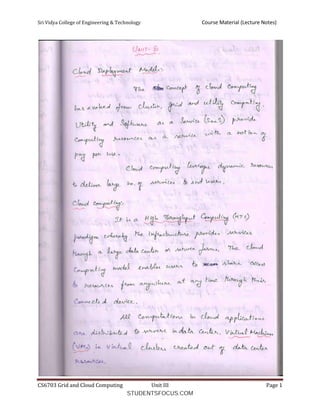 Sri Vidya College of Engineering & Technology Course Material (Lecture Notes)
Unit-
Cloud Deployment Models:
The concept of cloud computing
has evolved from cluster, grid and utility computing.
Utility and Software as a Service (SaaS) provide
computing resources as a service with a notion of
pay per use.
Cloud computing leverages dynamic resources
to deliver large no. of services to end users.
Cloud Computing:
It is a High Throughput Computing (HTC)
paradigm whereby the infrastructure provides services
through a large data center or server farms. The cloud
computing model enables users to share access
to resources from anywhere at any time through their
connected device.
All computations in cloud applications
are distributed to servers in data center, Virtual Machines
(VMs) in virtual clusters created out of data center
resources.
CS6703 Grid and Cloud Computing Unit III Page 1
STUDENTSFOCUS.COM